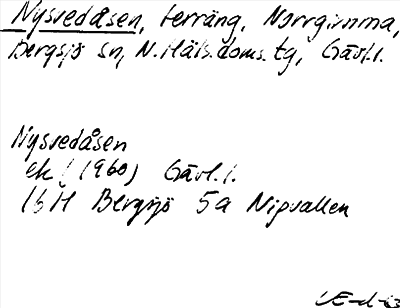 Nysvedåsen, terräng, Norrgimma,
Bergsjö sn, N. Häls. doms. tg, Gävl.l.
Nysvedåsen
ek. (1960) Gävl.l.
16H Bergsjö 5a Nipvallen